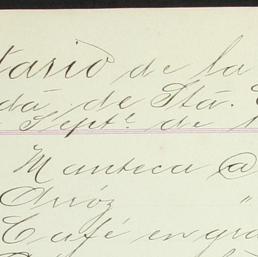 tario de la
da, de Sta.
Septe. de 1
Manteca @
Arróz "
Café en gra